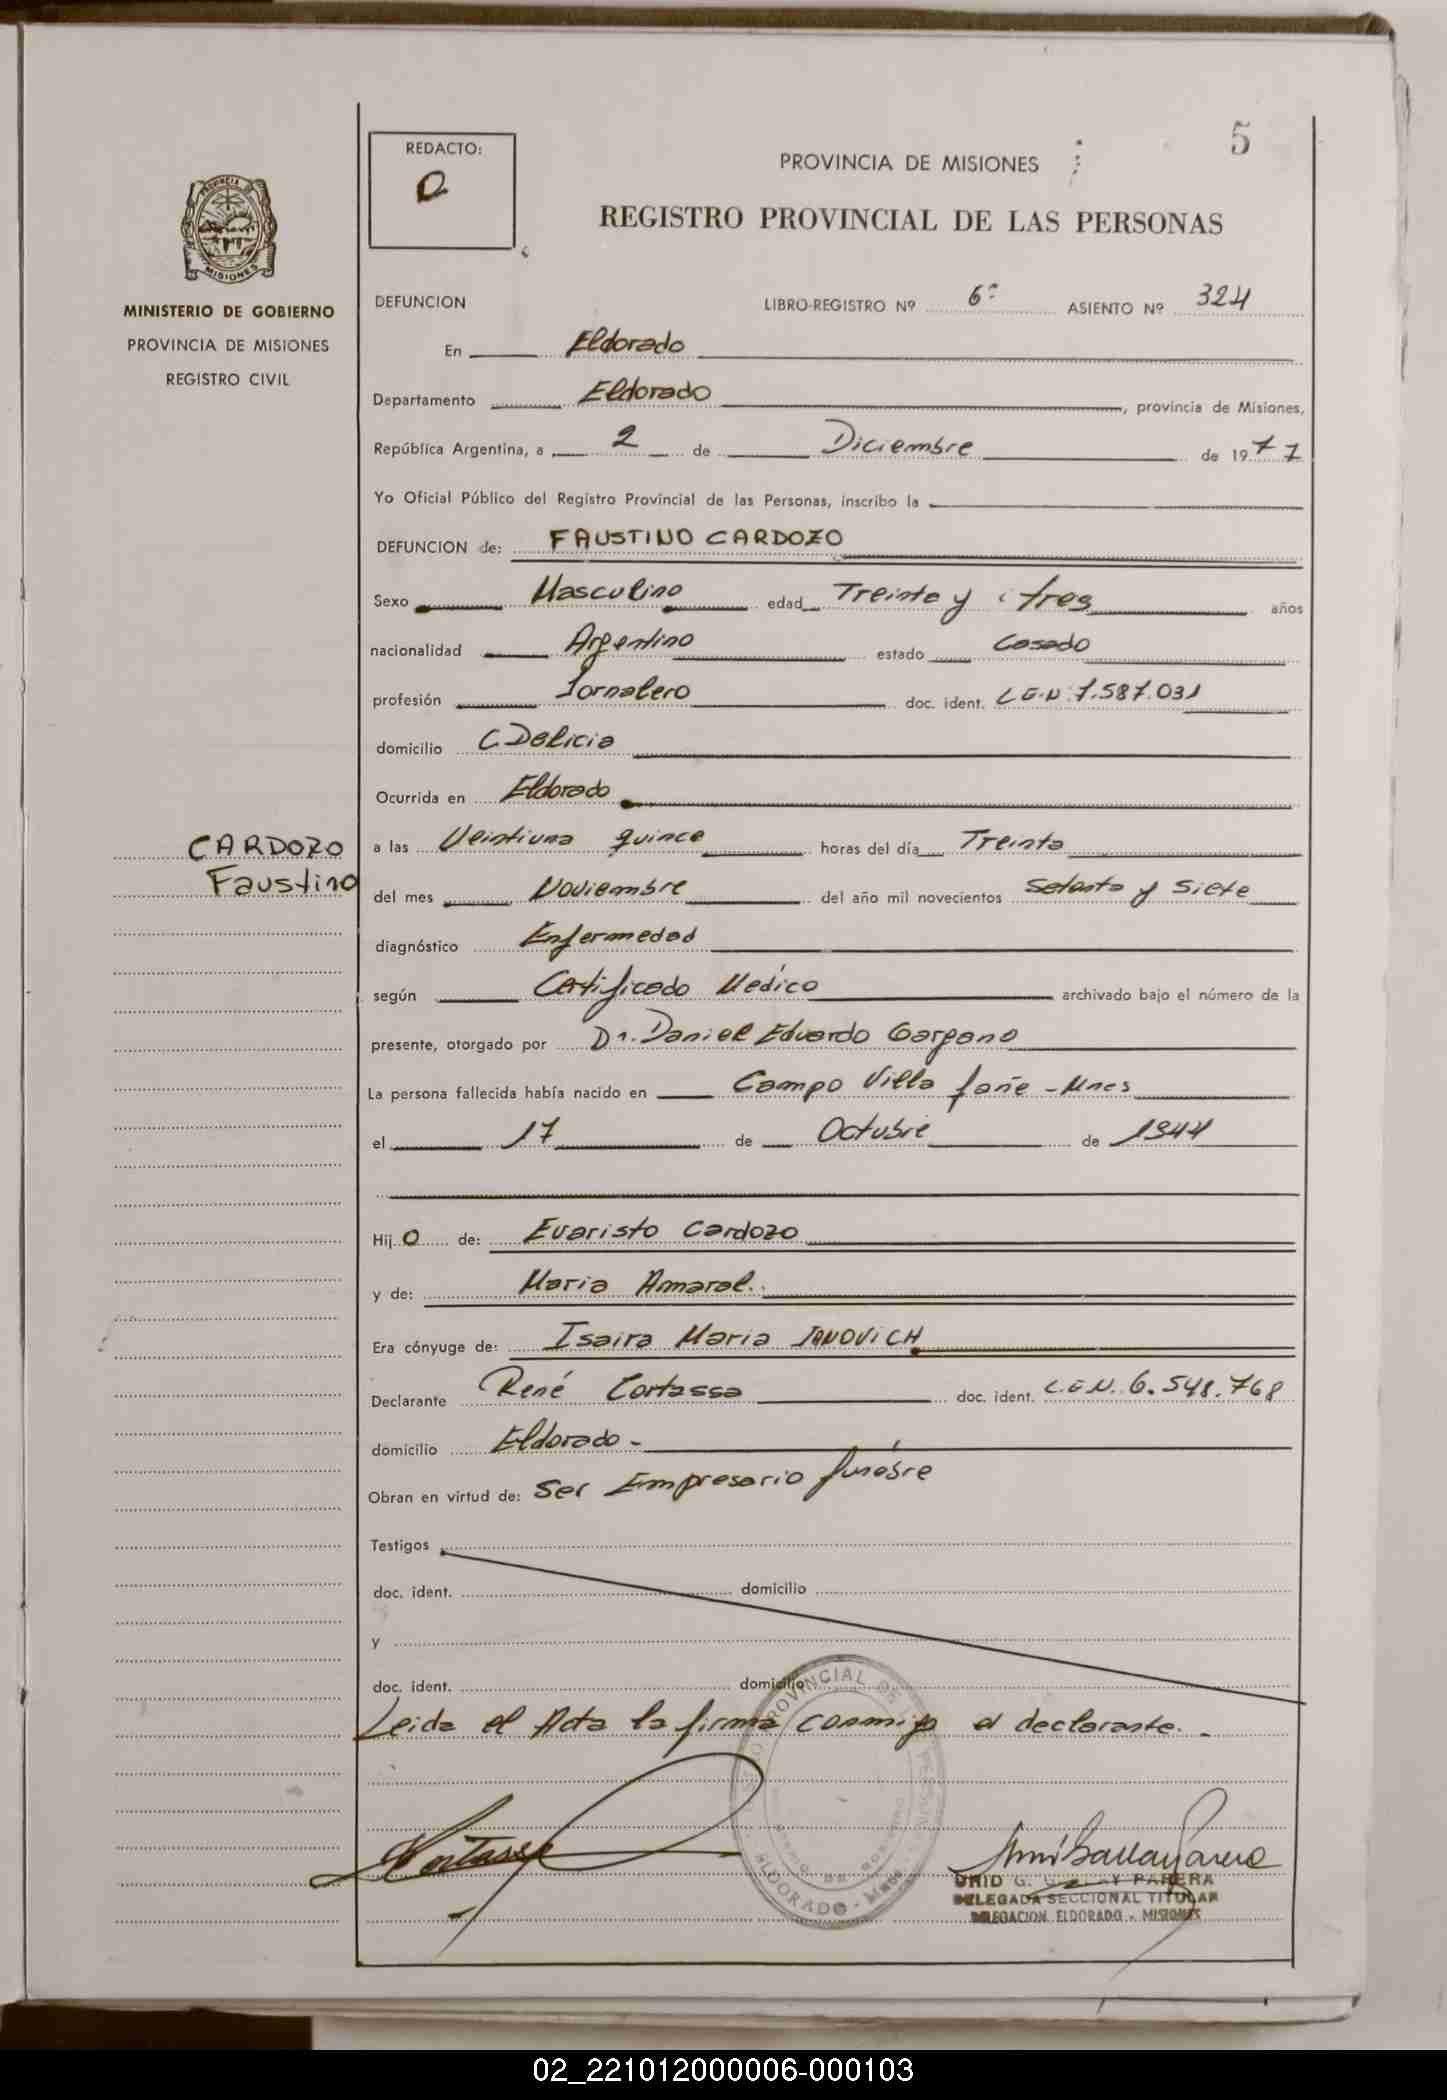 5
REDACTO:
PROVINCIA DE MISIONES
REGISTRO PROVINCIAL DE LAS PERSONAS
PROVINCIA DE
MISIONES
MINISTERIO DE GOBIERNO
PROVINCIA DE MISIONES
REGISTRO CIVIL
DEFUNCION LIBRO-REGISTRO Nº 6º ASIENTO Nº 324
En Eldorado
Departamento Eldorado, provincia de Misiones,
República Argentina, a 2 de Diciembre de 1977
Yo Oficial Público del Registro Provincial de las Personas, inscribo la
DEFUNCION de: FAUSTINO CARDOZO
Sexo Masculino edad Treinta y tres años
nacionalidad Argentino estado Casado
profesión Jornalero doc. ident. L.E.N. 7.587.031
domicilio C. Delicia
Ocurrida en Eldorado
CARDOZO
Faustino
a las Veintiuna quince horas del día Treinta
del mes Noviembre del año mil novecientos Setenta y Siete
diagnóstico Enfermedad
según Certificado Medico archivado bajo el número de la
presente, otorgado por Dr. Daniel Eduardo Gargano
La persona fallecida había nacido en Campo Villa fañe - Mnes
el 17 de Octubre de 1944
Hijo de: Evaristo Cardozo
y de: Maria Amaral.
Era cónyuge de: Isaira Maria JANOVICH
Declarante René Cortassa doc. ident. L.E.N. 6.548.768
domicilio Eldorado -
Obran en virtud de: Ser Empresario funébre
Testigos
doc. ident. domicilio
y
doc. ident. domicilio
Leida el Acta la firma conmigo el declarante. -
Cortassa
PROVINCIAL DE
ELDORADO - Mnes
G. PARERA
DELEGADA SECCIONAL TITULAR
DELEGACION ELDORADO - MISIONES
02_221012000006-000103